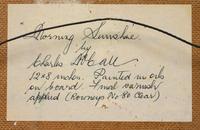 Morning Sunshine
by
Charles McCall
12 x 8 inches. Painted in oils
on board. Final varnish
applied (Rowneys No 80 Clear)